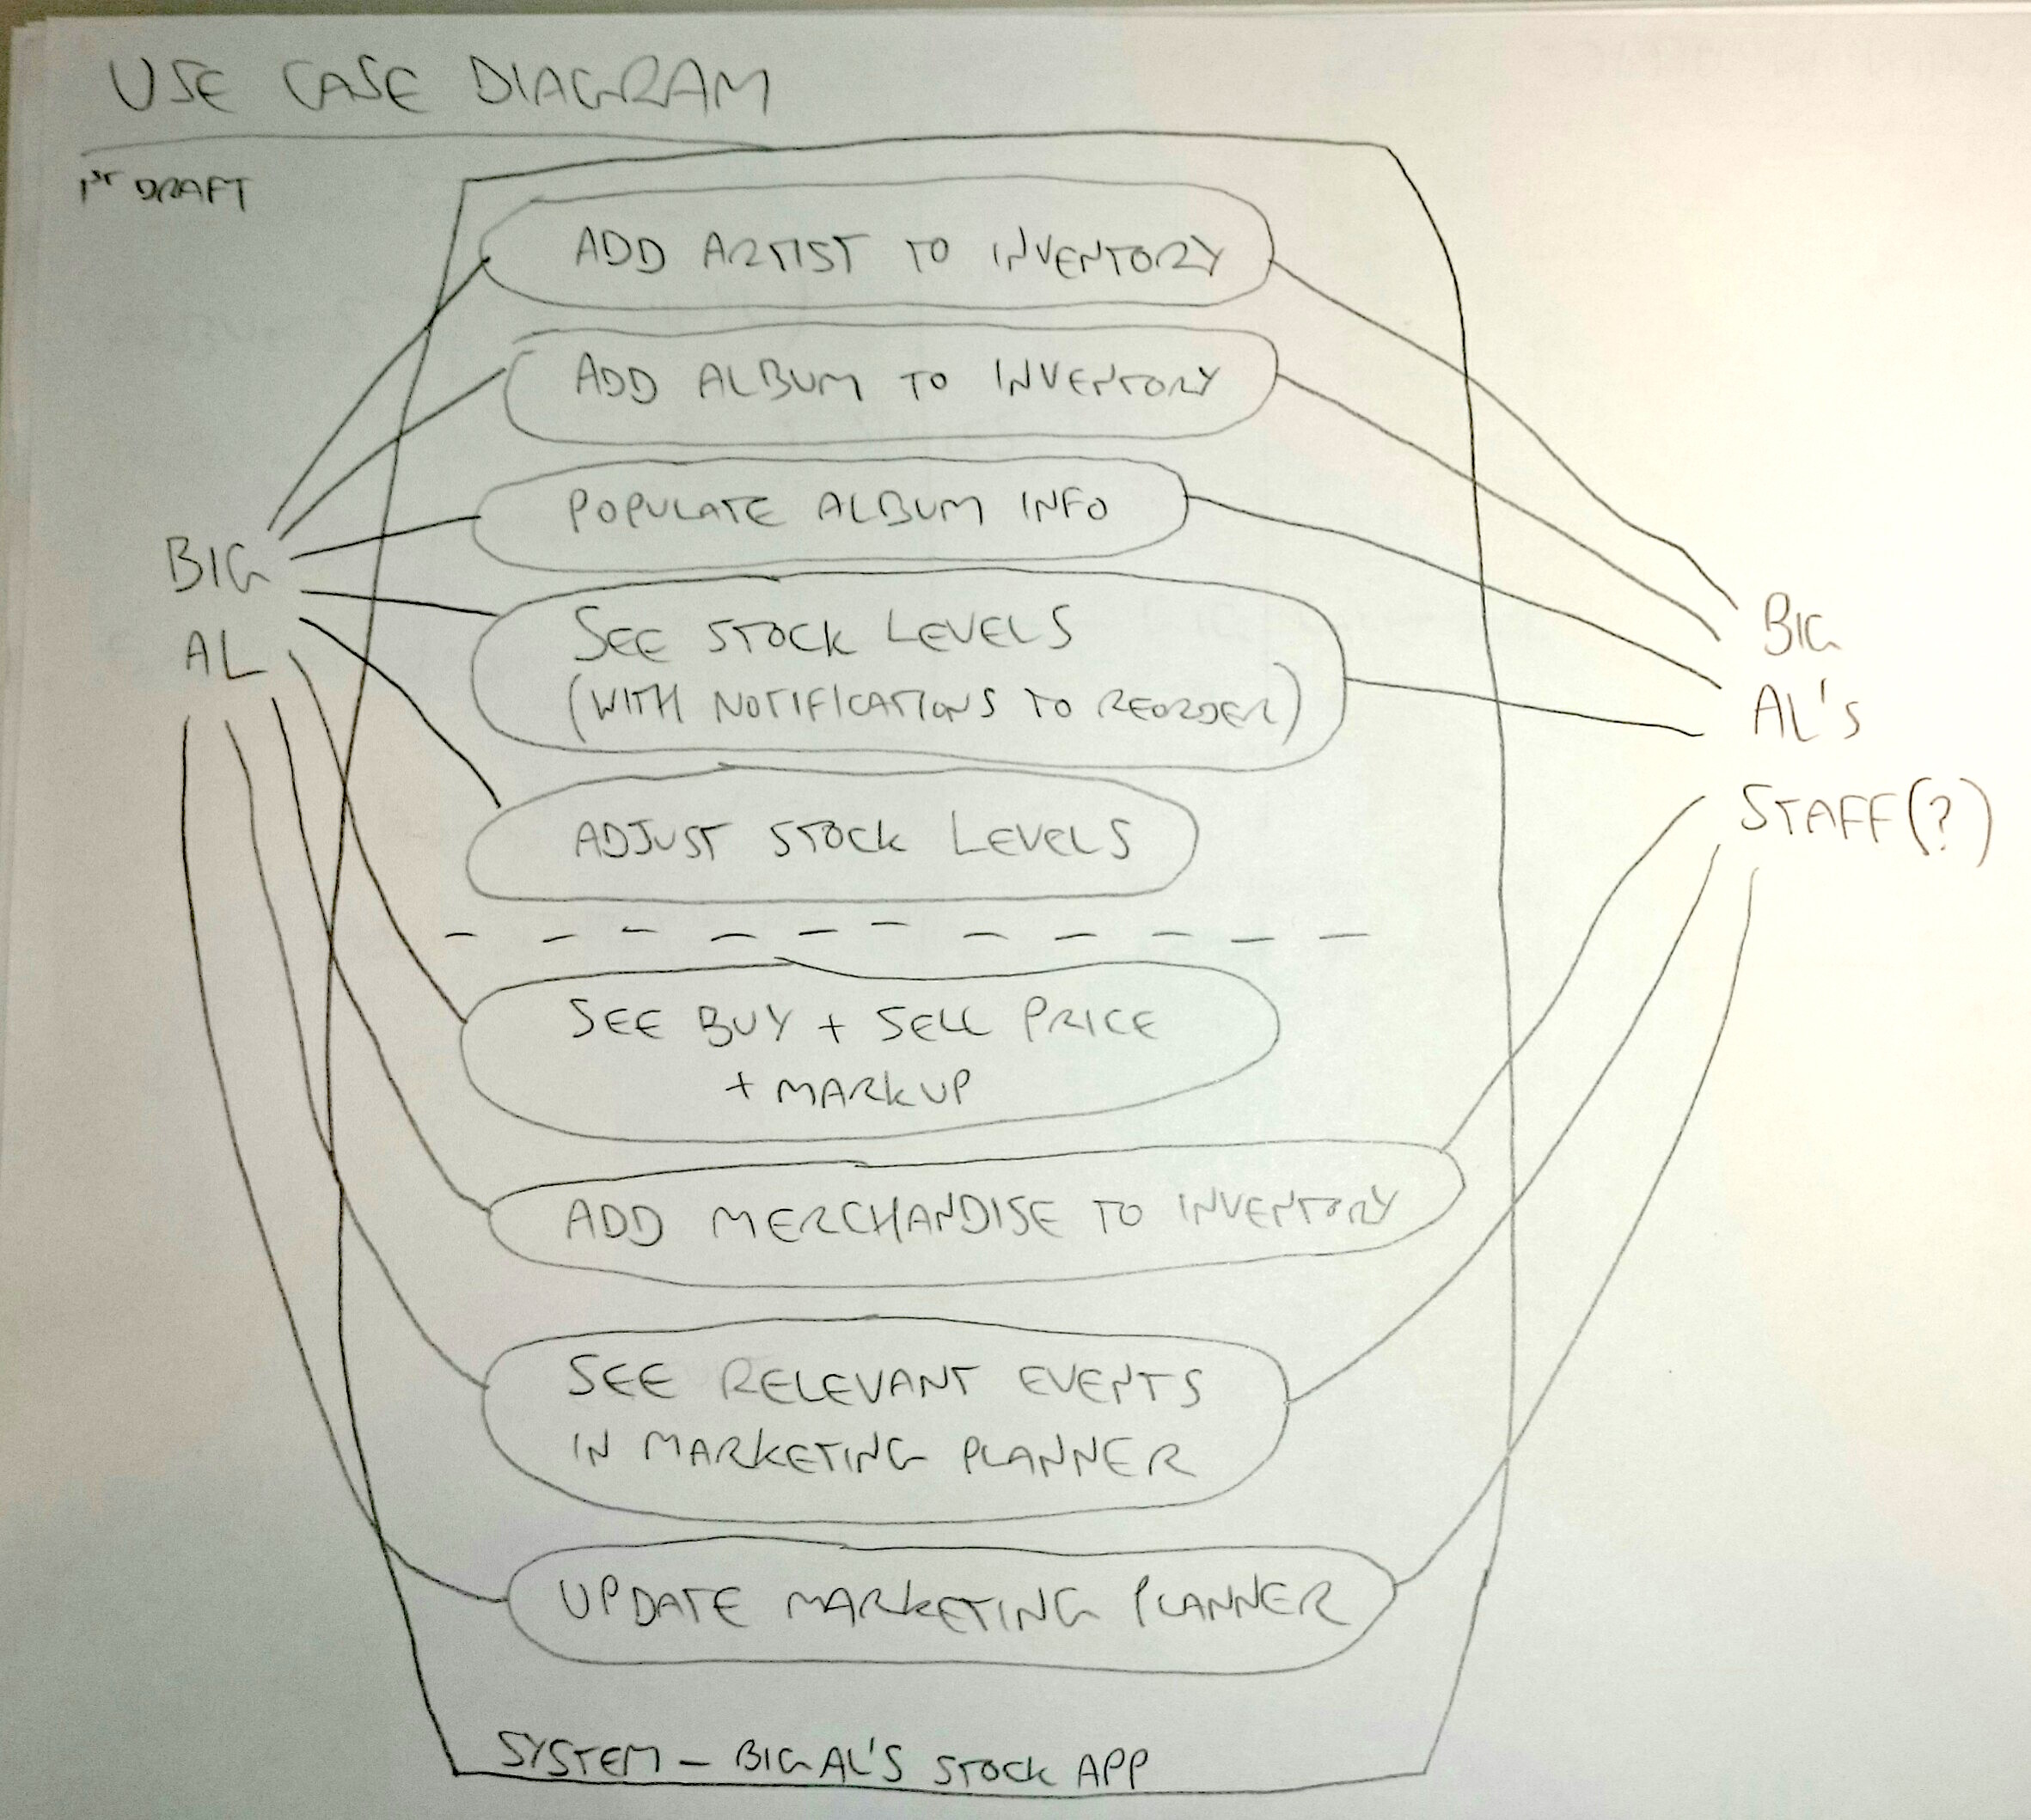 USE CASE DIAGRAM
1ST DRAFT
ADD ARTIST TO INVENTORY
ADD ALBUM TO INVENTORY
POPULATE ALBUM INFO
BIG
AL
SEE STOCK LEVELS
(WITH NOTIFICATIONS TO REORDER)
BIG
AL'S
STAFF(?)
ADJUST STOCK LEVELS
SEE BUY + SELL PRICE
+ MARKUP
ADD MERCHANDISE TO INVENTORY
SEE RELEVANT EVENTS
IN MARKETING PLANNER
UPDATE MARKETING PLANNER
SYSTEM - BIG AL'S STOCK APP